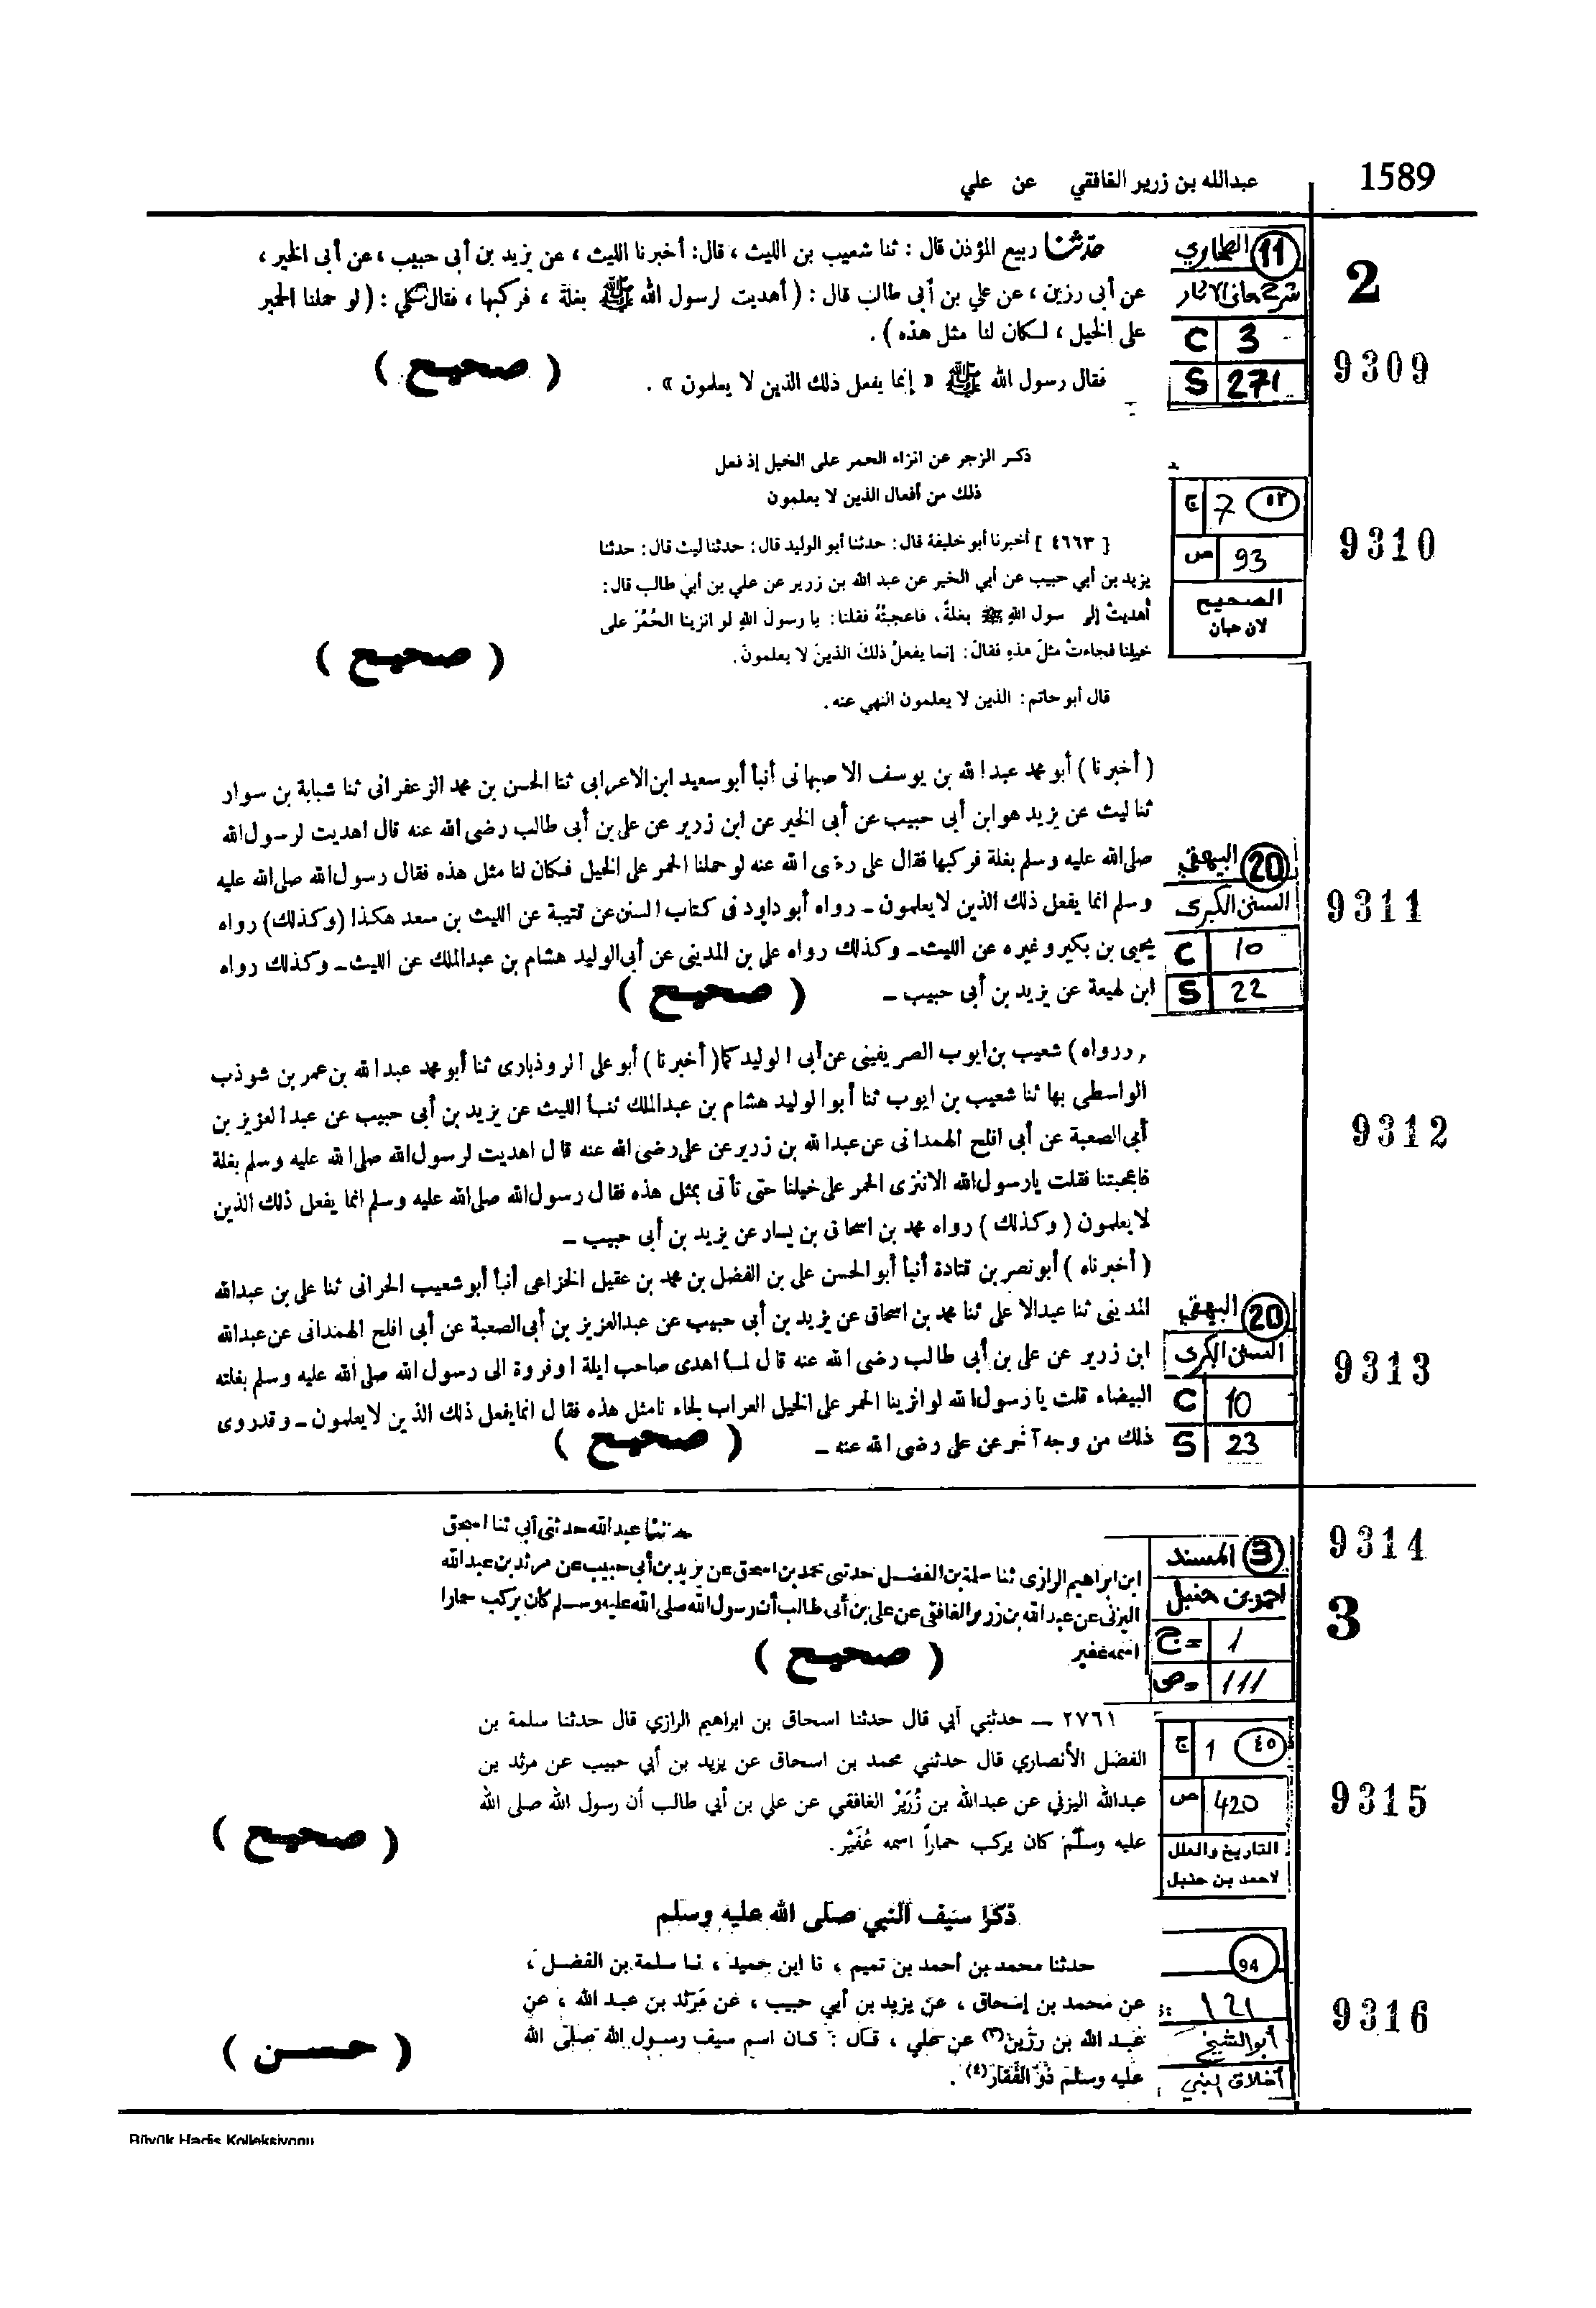 1589
عبدالله بن زرير الغافقي عن علي
2
9309
11 الطحاوي
شرح معاني الاثار
C 3
S 271
حدثنا ربيع المؤذن قال : ثنا شعيب بن الليث ، قال: أخبرنا الليث ، عن يزيد بن أبى حبيب ، عن أبى الخير ،
عن أبى رزين ، عن علي بن أبى طالب قال : ( أهديت لرسول الله ﷺ بغلة ، فركبها ، فقال علي : ( لو حملنا الحمير
على الخيل ، لكان لنا مثل هذه ) .
فقال رسول الله ﷺ « إنما يفعل ذلك الذين لا يعلمون » .
( صحيح )
9310
٥٣ 7 ج
93 ص
الصحيح
لابن حبان
ذكر الزجر عن انزاء الحمر على الخيل إذ فعل
ذلك من أفعال الذين لا يعلمون
[ ٤٦٦٣ ] أخبرنا أبو خليفة قال: حدثنا أبو الوليد قال: حدثنا ليث قال: حدثنا
يزيد بن أبي حبيب عن أبي الخير عن عبد الله بن زرير عن علي بن أبي طالب قال:
أهديتُ إلى سول الله ﷺ بغلةً، فاعجبتْهُ فقلنا: يا رسولَ اللهِ لو انزينا الحُمُرَ على
خيلِنا فجاءتْ مثلَ هذهِ فقالَ: إنما يفعلُ ذلكَ الذينَ لا يعلمونَ.
( صحيح )
قال أبو حاتم: الذين لا يعلمون النهي عنه.
9311
20 البيهقي
السنن الكبرى
C 10
S 22
( أخبرنا ) أبو محمد عبد الله بن يوسف الاصبهانى أنبأ أبو سعيد ابن الاعرابى ثنا الحسن بن محمد الزعفرانى ثنا شبابة بن سوار
ثنا ليث عن يزيد هو ابن أبى حبيب عن أبى الخير عن ابن زرير عن على بن أبى طالب رضى الله عنه قال اهديت لرسول الله
صلى الله عليه وسلم بغلة فركبها فقال على رضى الله عنه لو حملنا الحمر على الخيل فكان لنا مثل هذه فقال رسول الله صلى الله عليه
وسلم انما يفعل ذلك الذين لا يعلمون ــ رواه أبو داود فى كتاب السنن عن قتيبة عن الليث بن سعد هكذا (وكذلك) رواه
يحيى بن بكير وغيره عن الليث ــ وكذلك رواه على بن المدينى عن أبى الوليد هشام بن عبدالملك عن الليث ــ وكذلك رواه
ابن لهيعة عن يزيد بن أبى حبيب ــ
( صحيح )
9312
ررواه ) شعيب بن ايوب الصريفينى عن أبى الوليد كما ( أخبرنا ) أبو على الروذبارى ثنا أبو محمد عبد الله بن عمر بن شوذب
الواسطى بها ثنا شعيب بن ايوب ثنا أبو الوليد هشام بن عبدالملك ثنا الليث عن يزيد بن أبى حبيب عن عبد العزيز بن
أبى الصعبة عن أبى افلح الهمدانى عن عبدالله بن زرير عن على رضى الله عنه قال اهديت لرسول الله صلى الله عليه وسلم بغلة
فاعجبتنا فقلت يا رسول الله الا ننزى الحمر على خيلنا حتى تأتى بمثل هذه فقال رسول الله صلى الله عليه وسلم انما يفعل ذلك الذين
لا يعلمون ( وكذلك ) رواه محمد بن اسحاق بن يسار عن يزيد بن أبى حبيب ــ
9313
20 البيهقي
السنن الكبرى
C 10
S 23
( أخبرناه ) أبو نصر بن قتادة أنبأ أبو الحسن على بن الفضل بن محمد بن عقيل الخزاعى أنبأ أبو شعيب الحرانى ثنا على بن عبدالله
المدينى ثنا عبدالاعلى ثنا محمد بن اسحاق عن يزيد بن أبى حبيب عن عبدالعزيز بن أبى الصعبة عن أبى افلح الهمدانى عن عبدالله
ابن زرير عن على بن أبى طالب رضى الله عنه قال لما اهدى صاحب ايلة او فروة الى رسول الله صلى الله عليه وسلم بغلته
البيضاء قلت يا رسول الله لو انزينا الحمر على الخيل العراب لجاءنا مثل هذه فقال انما يفعل ذلك الذين لا يعلمون ــ وقد روى
ذلك من وجه آخر عن على رضى الله عنه ــ
( صحيح )
9314
3
3 المسند
احمد بن حنبل
ج= 1
ص= 111
حدثنا عبدالله حدثنى أبى ثنا اسحق
ابن ابراهيم الرازى ثنا سلمة بن الفضل حدثنى محمد بن اسحق عن يزيد بن أبى حبيب عن مرثد بن عبدالله
اليزنى عن عبدالله بن زرير الغافقى عن على بن أبى طالب أن رسول الله صلى الله عليه وسلم كان يركب حمارا
اسمه عفير
( صحيح )
9315
٤٥ 1 ج
420 ص
التاريخ والعلل
لاحمد بن حنبل
٢٧٦١ ــ حدثني أبي قال حدثنا اسحاق بن ابراهيم الرازي قال حدثنا سلمة بن
الفضل الأنصاري قال حدثني محمد بن اسحاق عن يزيد بن أبي حبيب عن مرثد بن
عبدالله اليزني عن عبدالله بن زُرَيْر الغافقي عن علي بن أبي طالب أن رسول الله صلى الله
عليه وسلّم كان يركب حماراً اسمه عُفَيْر.
( صحيح )
9316
94
121
أبو الشيخ
أخلاق النبي
ذكر سيف النبي صلى الله عليه وسلم
حدثنا محمد بن أحمد بن تميم ، نا ابن حميد ، نا سلمة بن الفضل ،
عن محمد بن إسحاق ، عن يزيد بن أبي حبيب ، عن مَرْثد بن عبد الله ، عن
عبد الله بن رزين(٣) عن علي ، قال : كان اسم سيف رسول الله صلى الله
عليه وسلم ذو الفَقَار(٤) .
( حسن )
Büyük Hadis Kolleksiyonu